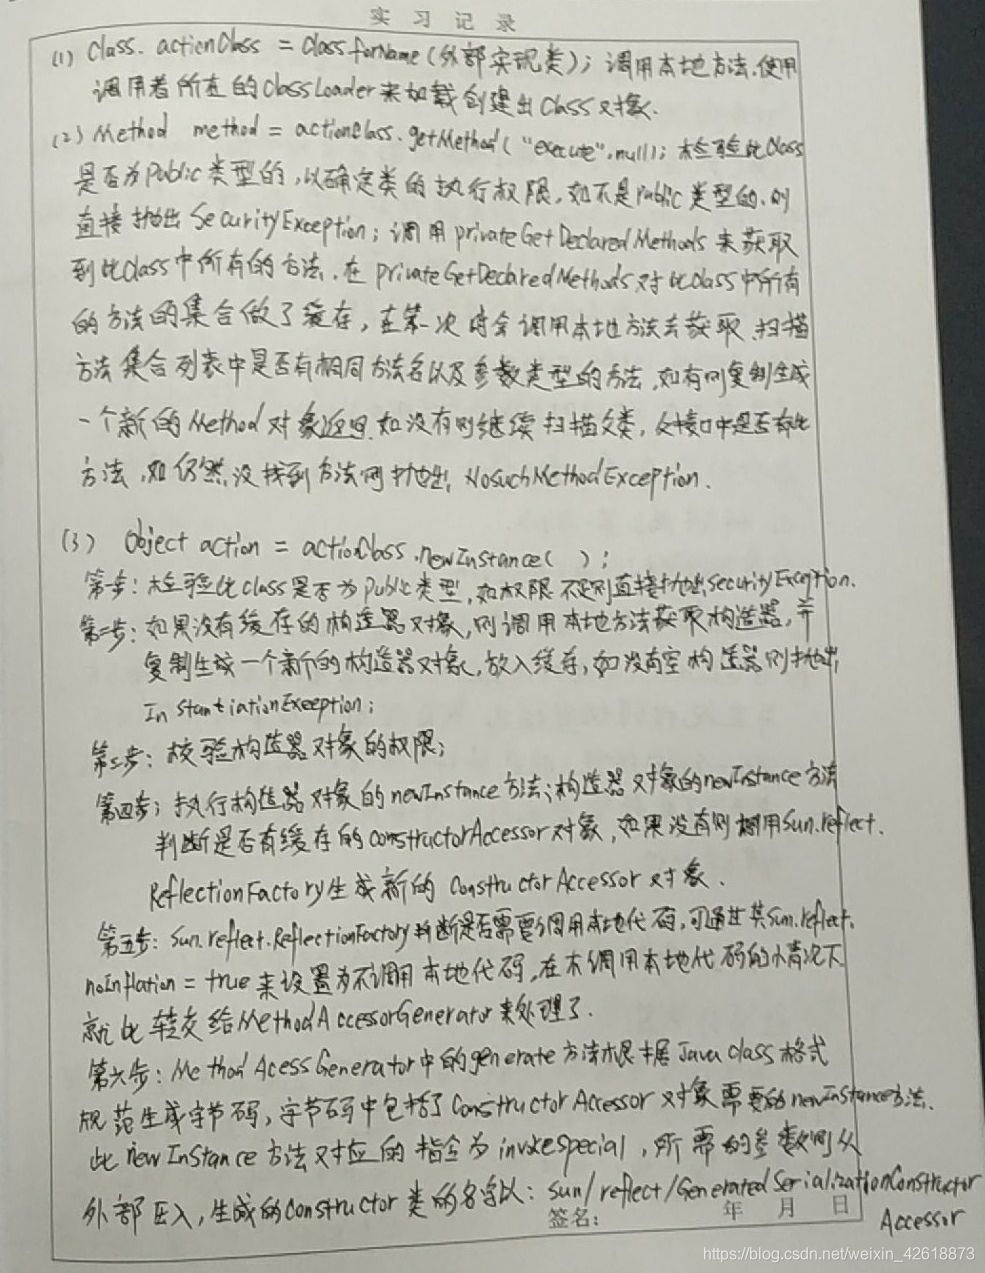 实习记录
(1) Class. actionClass = Class.forName(外部实现类); 调用本地方法.使用
调用者所在的ClassLoader来加载创建出Class对象.
(2) Method method = actionClass.getMethod("execute",null); 检验此Class
是否为Public类型的,以确定类的执行权限,如不是public类型的.则
直接抛出SecurityException; 调用privateGetDeclaredMethods来获取
到此Class中所有的方法.在privateGetDeclaredMethods对此Class中所有
的方法的集合做了缓存,在第一次时会调用本地方法去获取.扫描
方法集合列表中是否有相同方法名以及参数类型的方法,如有则复制生成
一个新的Method对象返回.如没有则继续扫描父类,父接口中是否有此
方法,如仍然没找到方法则抛出NosuchMethodException.
(3) Object action = actionClass.newInstance( );
第一步:检验此class是否为public类型,如权限不足则直接抛出SecurityException.
第二步:如果没有缓存的构造器对象,则调用本地方法获取构造器,并
复制生成一个新的构造器对象,放入缓存,如没有空构造器则抛出
InstantiationException;
第三步:校验构造器对象的权限;
第四步;执行构造器对象的newInstance方法;构造器对象的newInstance方法
判断是否有缓存的ConstructorAccessor对象,如果没有则调用Sun.reflect.
ReflectionFactory生成新的ConstructorAccessor对象.
第五步:Sun.reflect.ReflectionFactory判断是否需要调用本地代码,可通过其Sun.reflect.
noInflation = true来设置为不调用本地代码,在不调用本地代码的情况下
就此转交给MethodAccessorGenerator来处理了.
第六步:MethodAcessGenerator中的generate方法根据Java class格式
规范生成字节码,字节码中包括了ConstructorAccessor对象需要的newInstance方法.
此newInstance方法对应的指令为invokespecial,所需的参数则从
外部压入,生成的Constructor类的名字以:sun/reflect/GeneratedSerializationConstructor
Accessor
签名: 年 月 日
https://blog.csdn.net/weixin_42618873